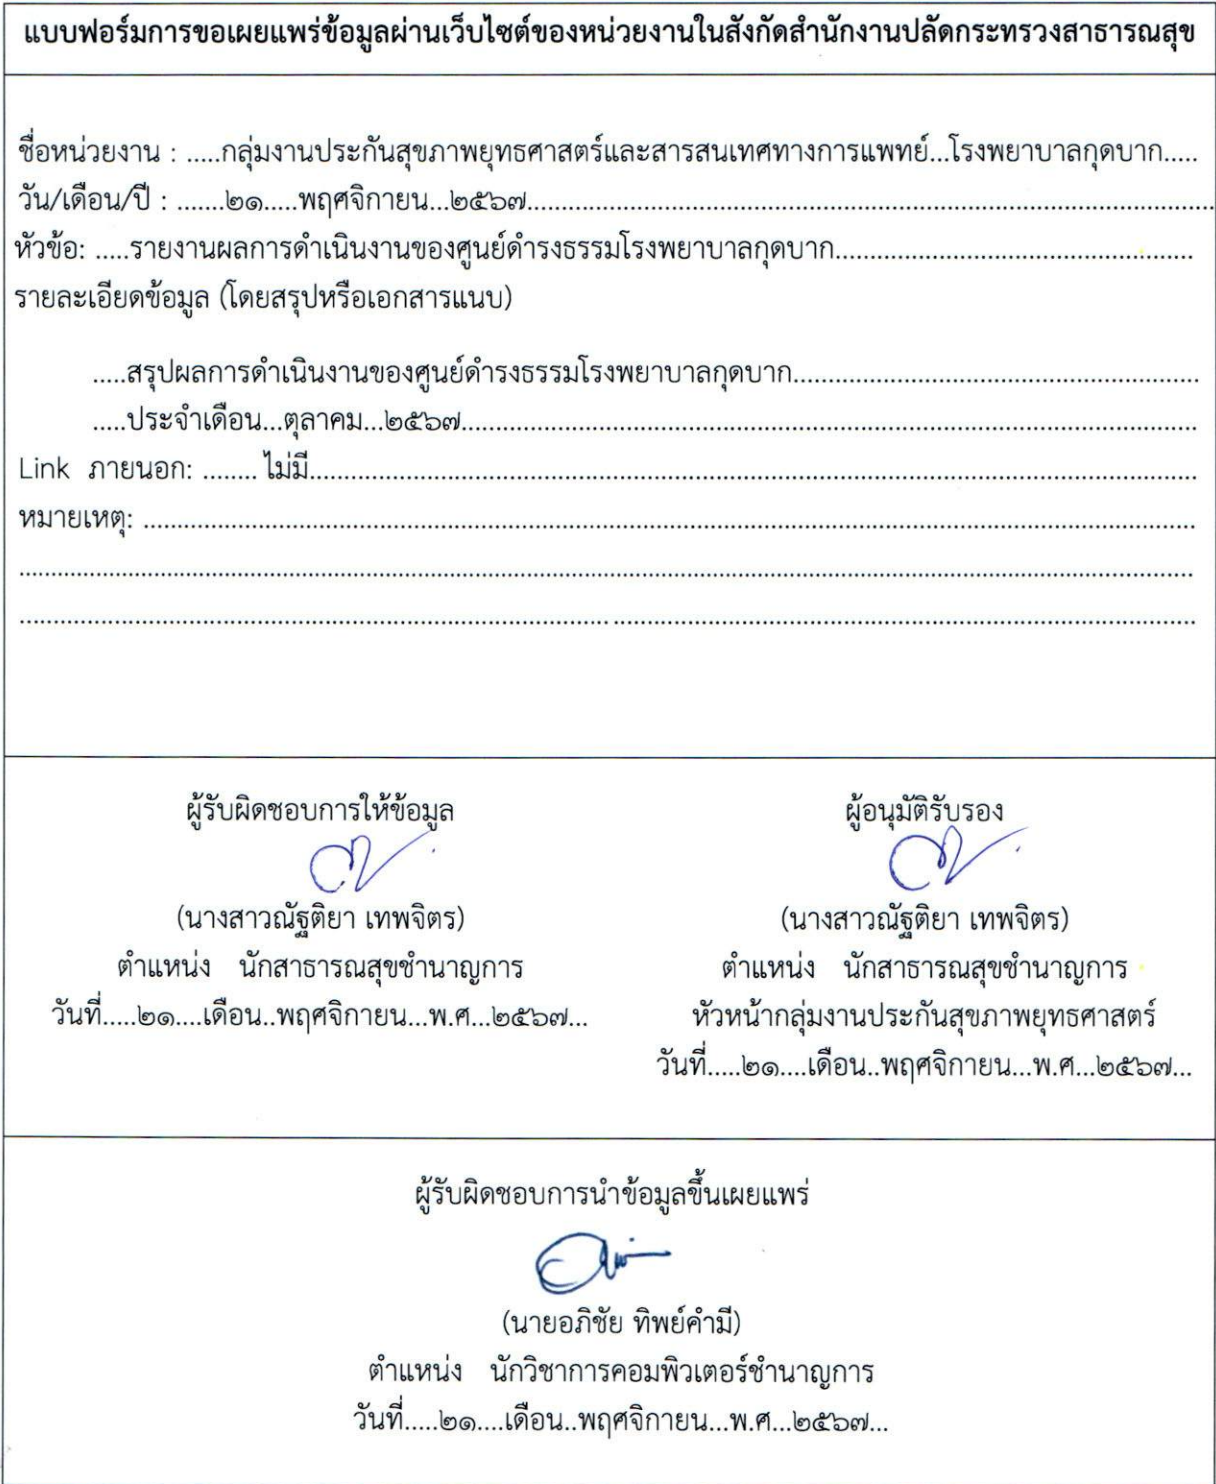 แบบฟอร์มการขอเผยแพร่ข้อมูลผ่านเว็บไซต์ของหน่วยงานในสังกัดสำนักงานปลัดกระทรวงสาธารณสุข
ชื่อหน่วยงาน : .....กลุ่มงานประกันสุขภาพยุทธศาสตร์และสารสนเทศทางการแพทย์...โรงพยาบาลกุดบาก.....
วัน/เดือน/ปี : .......๒๑.....พฤศจิกายน...๒๕๖๗...............................................................
หัวข้อ: .....รายงานผลการดำเนินงานของศูนย์ดำรงธรรมโรงพยาบาลกุดบาก....................................................
รายละเอียดข้อมูล (โดยสรุปหรือเอกสารแนบ)
.....สรุปผลการดำเนินงานของศูนย์ดำรงธรรมโรงพยาบาลกุดบาก............................................................
.....ประจำเดือน...ตุลาคม...๒๕๖๗............................................................
Link ภายนอก: ........ ไม่มี............................................................
หมายเหตุ: ............................................................
ผู้รับผิดชอบการให้ข้อมูล
(นางสาวณัฐติยา เทพจิตร)
ตำแหน่ง นักสาธารณสุขชำนาญการ
วันที่.....๒๑....เดือน..พฤศจิกายน...พ.ศ...๒๕๖๗...
ผู้อนุมัติรับรอง
(นางสาวณัฐติยา เทพจิตร)
ตำแหน่ง นักสาธารณสุขชำนาญการ
หัวหน้ากลุ่มงานประกันสุขภาพยุทธศาสตร์
วันที่.....๒๑....เดือน..พฤศจิกายน...พ.ศ...๒๕๖๗...
ผู้รับผิดชอบการนำข้อมูลขึ้นเผยแพร่
(นายอภิชัย ทิพย์คำมี)
ตำแหน่ง นักวิชาการคอมพิวเตอร์ชำนาญการ
วันที่.....๒๑....เดือน..พฤศจิกายน...พ.ศ...๒๕๖๗...